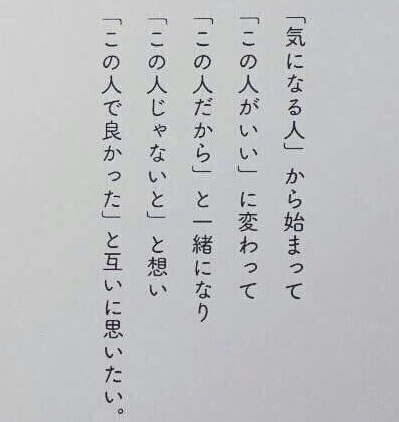 「気になる人」から始まって
「この人がいい」に変わって
「この人だから」と一緒になり
「この人じゃないと」と想い
「この人で良かった」と互いに思いたい。